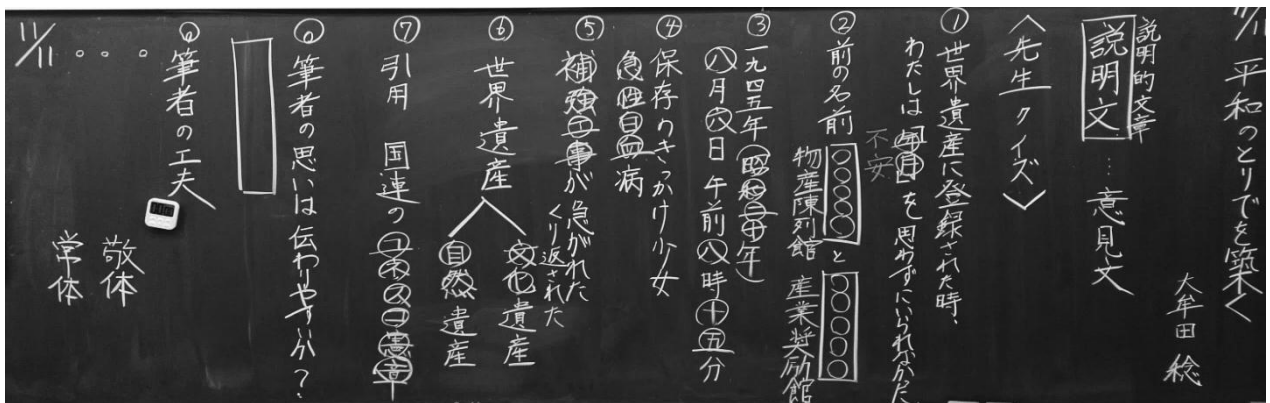 11/11 平和のとりでを築く
大牟田 稔
説明的文章
説明文…意見文
〈先生クイズ〉
① 世界遺産に登録された時、
わたしは を思わずにいられなかった
不安
② 前の名前 ○○○○○と○○○○○
物産陳列館 産業奨励館
③ 一九四五年(昭和二十年)
八月六日 午前八時十五分
④ 保存のきっかけ少女
急性白血病
⑤ 補強工事が急がれた
くり返された
⑥ 世界遺産
文化遺産
自然遺産
⑦ 引用 国連のユネスコ憲章
◎ 筆者の思いは伝わりやすいか?
◎ 筆者の工夫
敬体
常体
11/11 。。。